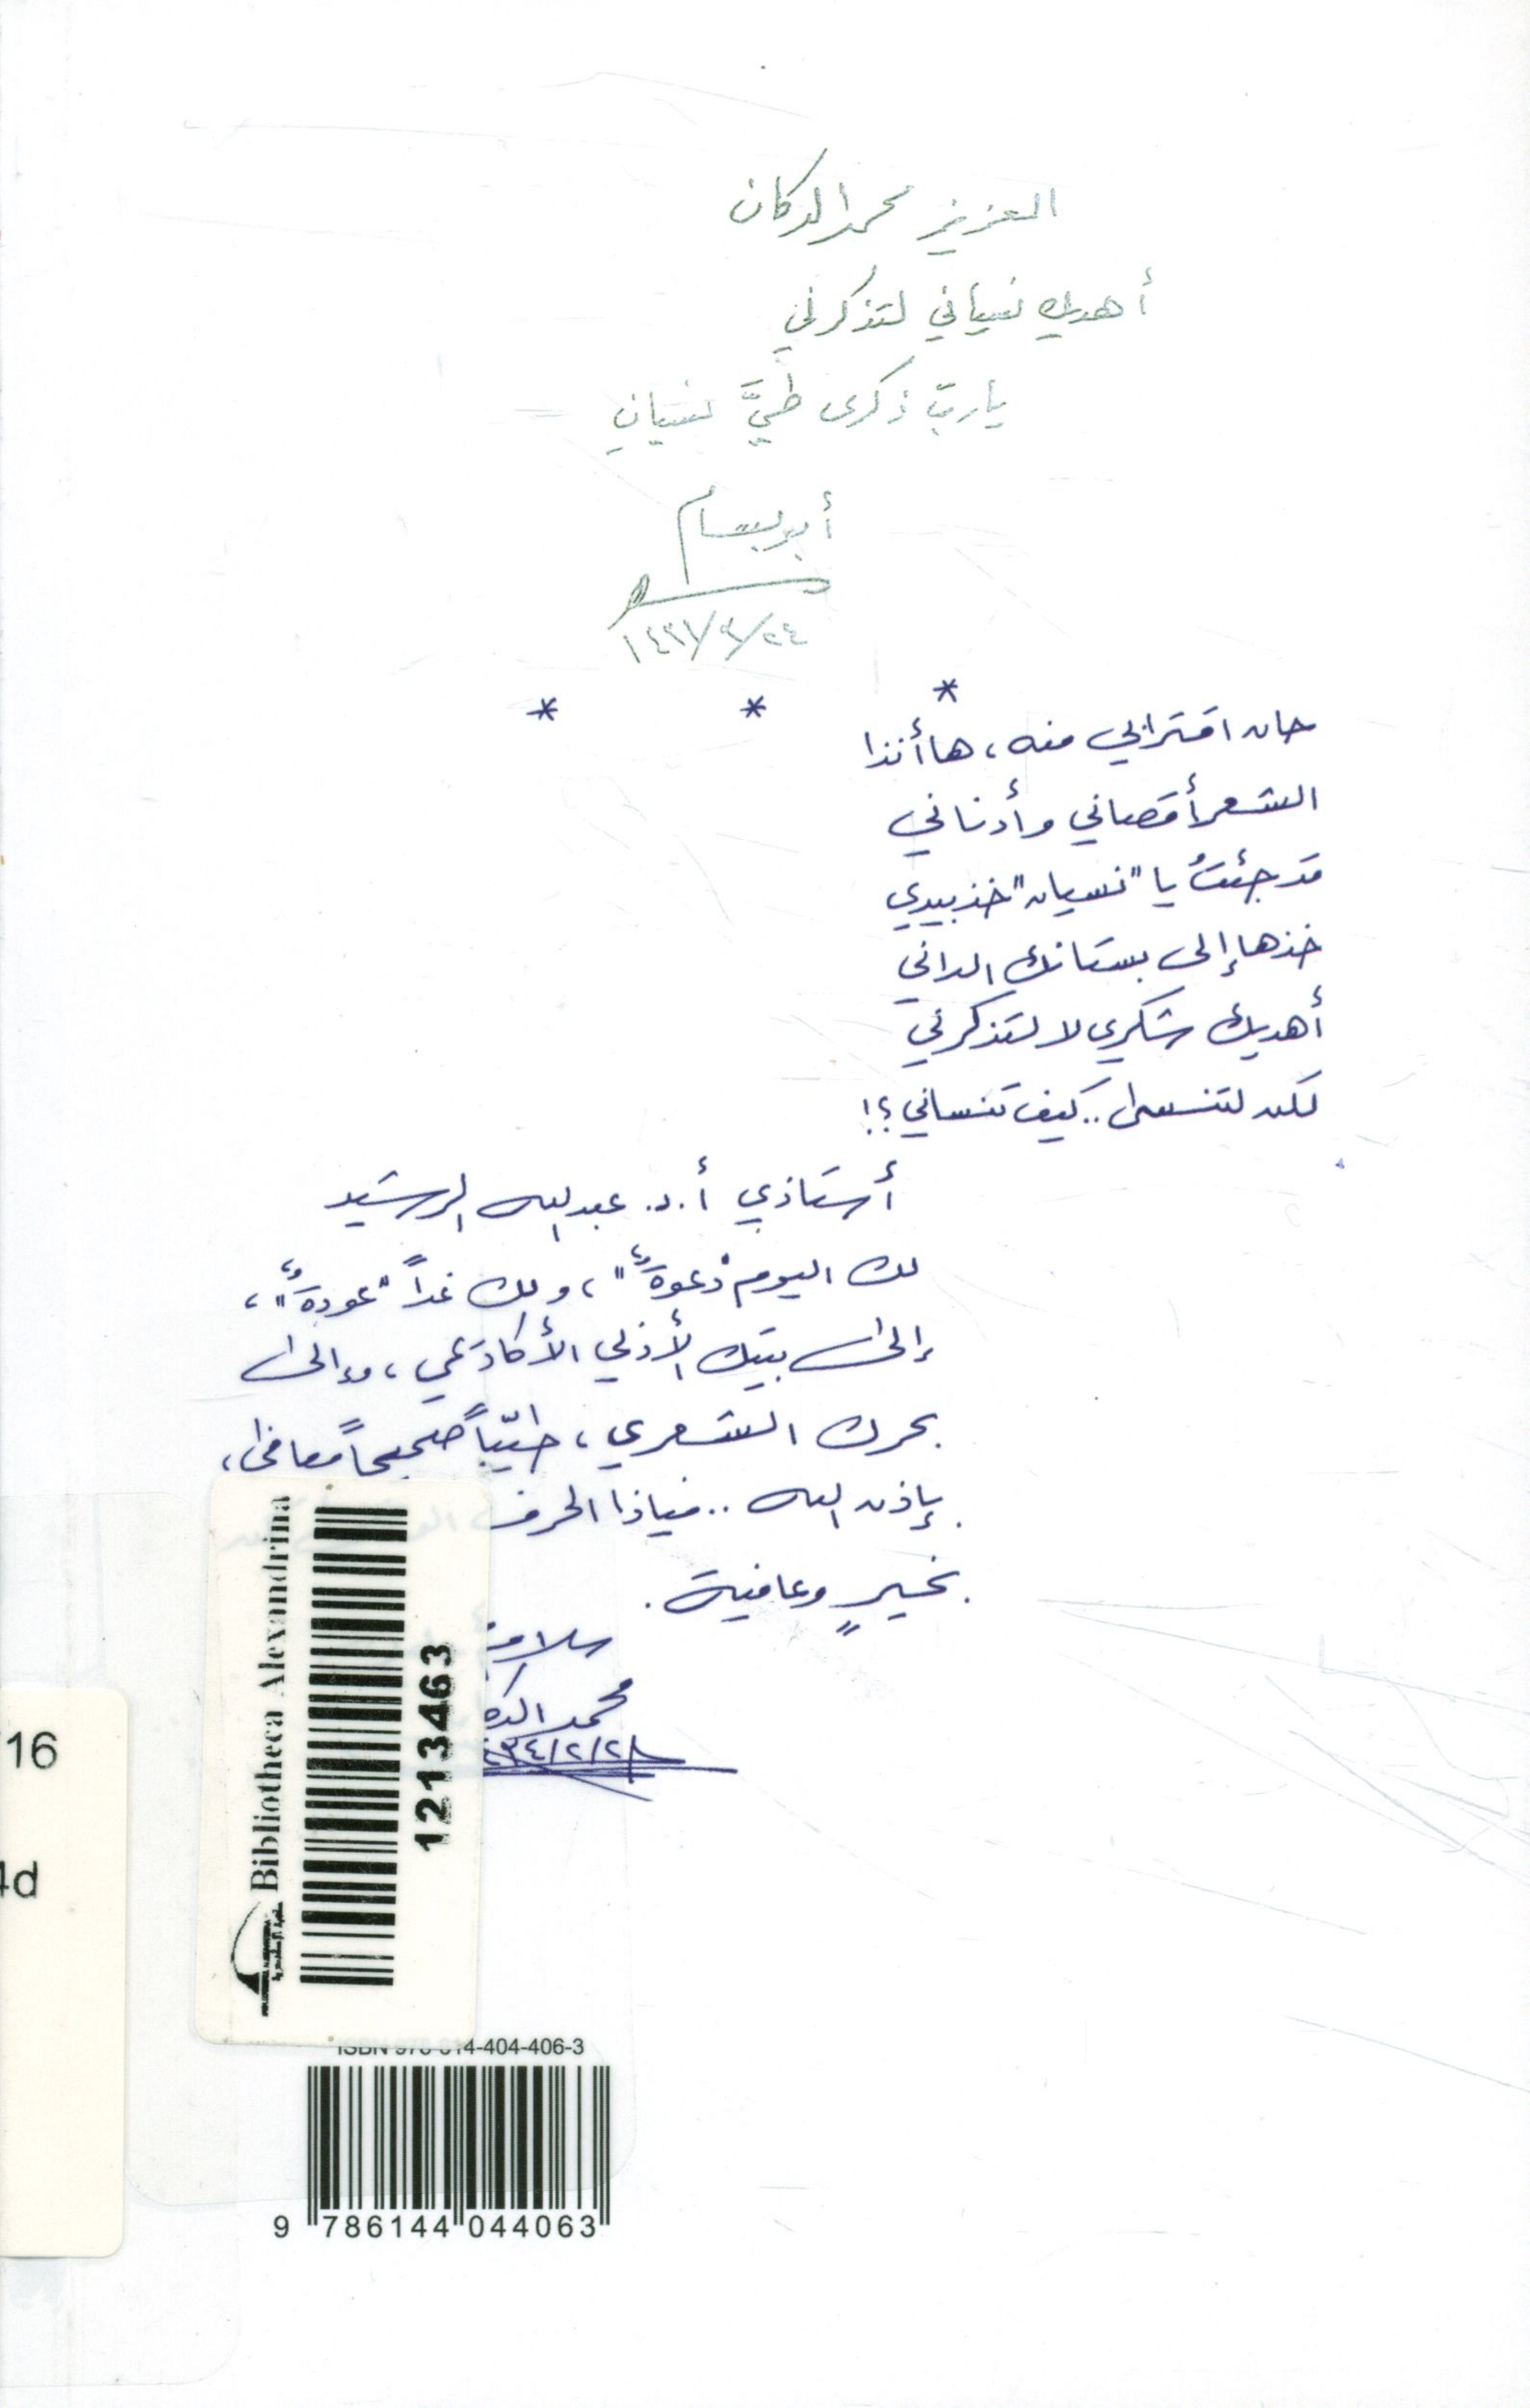 العزيز محمد الدكان
أهديك نسياني لتذكرني
يا ربّ ذكرى طيَّ نسيانِ
أبو بسام
١٤٣١/٣/٢٤
* * *
حان اقترابي منه، ها أنذا
الشعر أقصاني وأدناني
قد جئتُ يا "نسيان" خذ بيدي
خذها إلى بستانك الداني
أهديك شكري لا لتذكرني
لكن لتنسى.. كيف تنساني؟!
أستاذي أ.د. عبدالله الرشيد
لك اليوم "دعوةٌ"، ولك غداً "عودةٌ"،
إلى بيتك الأزلي الأكاديمي، وإلى
بحرك الشعري، طيّباً صحيحاً معافى،
بإذن الله.. فياذا الحرف
بخيرٍ وعافية.
محمد
٤٣٤/٢/٢١
Bibliotheca Alexandrina
1213463
16
4d
ISBN 978-614-404-406-3
9 786144 044063